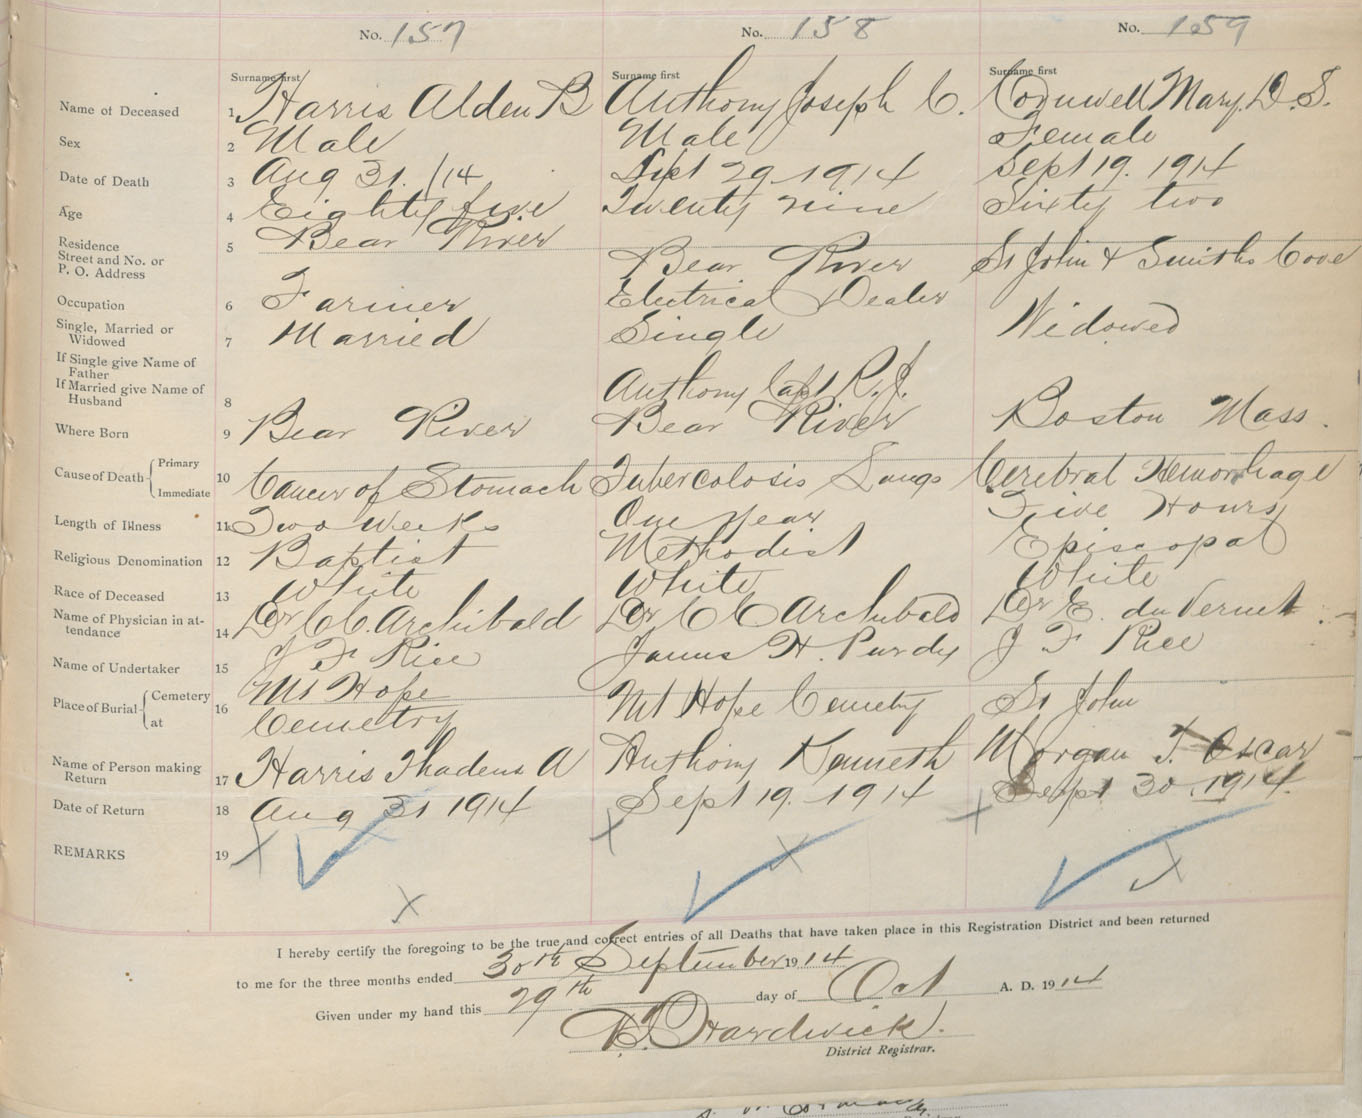 No. 157 No. 158 No. 159
Surname first Surname first Surname first
Name of Deceased 1 Harris Alden B Anthony Joseph C. Cornwell Mary. D. S.
Sex 2 Male Male Female
Date of Death 3 Aug 31. /14 Sept 29. 1914 Sept 19. 1914
Age 4 Eighty five Twenty nine Sixty two
Residence
Street and No. or
P. O. Address 5 Bear River Bear River St John & Smiths Cove
Occupation 6 Farmer Electrical Dealer
Single, Married or
Widowed 7 Married Single Widowed
If Single give Name of
Father
If Married give Name of
Husband 8 Anthony Capt R. J.
Where Born 9 Bear River Bear River Boston Mass.
Cause of Death Primary
Immediate 10 Cancer of Stomach Tubercolosis Lungs Cerebral Hemorrhage
Length of Illness 11 Two Weeks One year Five Hours
Religious Denomination 12 Baptist Methodist Episcopal
Race of Deceased 13 White White White
Name of Physician in at-
tendance 14 Dr C C. Archibald Dr C C Archibald Dr E. du Vernet
Name of Undertaker 15 J F Rice James H. Purdy J F Rice
Place of Burial Cemetery
at 16 Mt Hope
Cemetry Mt Hope Cemetry St John
Name of Person making
Return 17 Harris Thadeus A Anthony Kenneth Morgan T. Oscar
Date of Return 18 Aug 31 1914 Sept 19. 1914 Sept 30. 1914.
REMARKS 19
I hereby certify the foregoing to be the true and correct entries of all Deaths that have taken place in this Registration District and been returned
to me for the three months ended 30th September 1914
Given under my hand this 29th day of Oct A. D. 1914
Hardwick.
District Registrar.